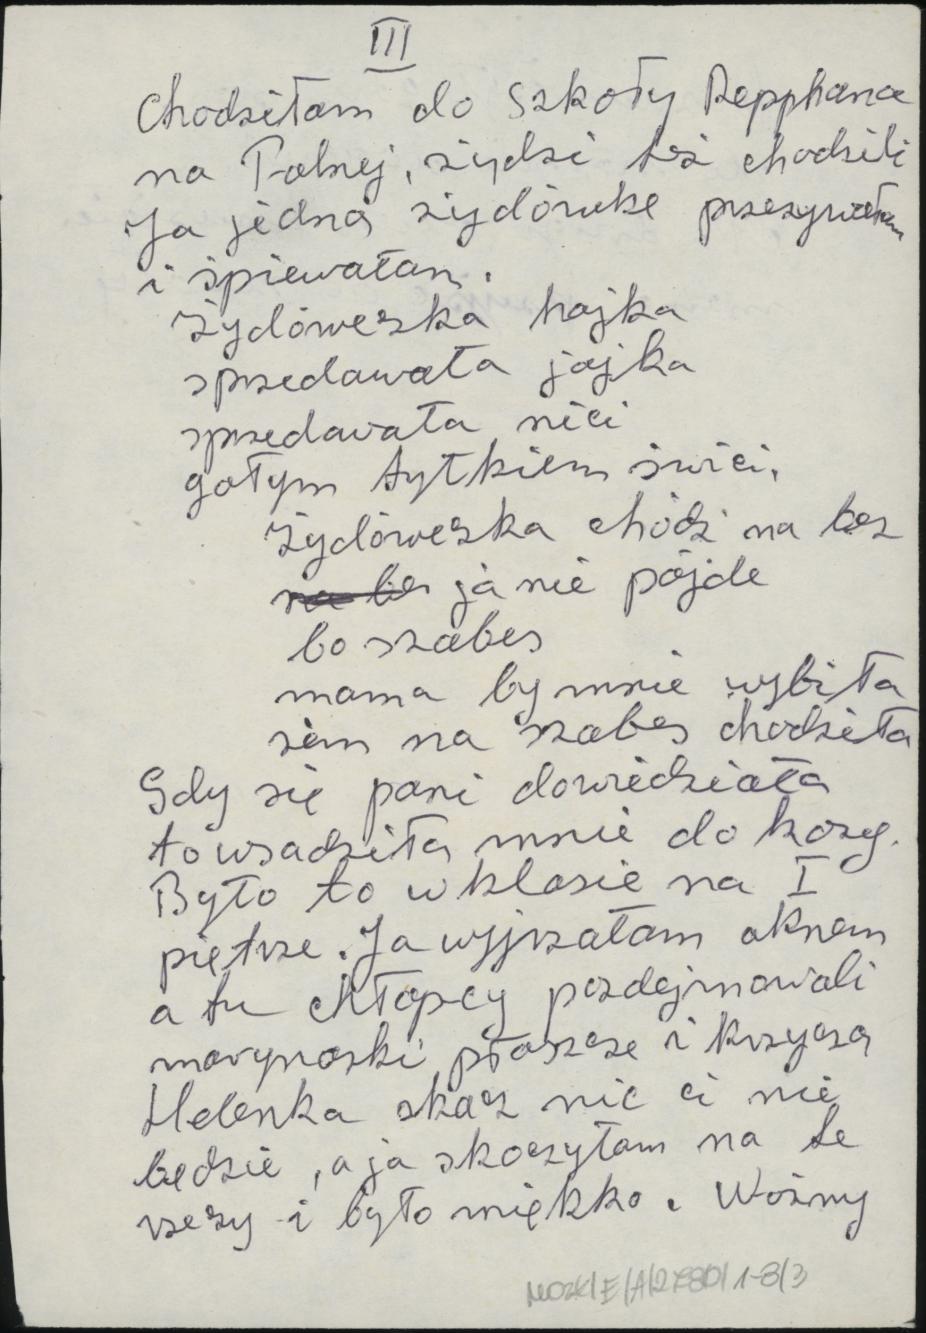 III
Chodziłam do Szkoły Repphana
na Polnej, żydzi też chodzili
Ja jedną żydówke przezywałam
i śpiewałam.
Żydóweczka hajka
sprzedawała jajka
sprzedawała nici
gołym tyłkiem świci,
Żydóweczka chódź na bez
na be ja nie pójde
bo szabes
mama by mnie wybiła
żem na szabes chodziła
Gdy się pani dowiedziała
to wsadziła mnie do kozy.
Było to w klasie na I
piętrze. Ja wyjrzałam oknem
a tu chłopcy pozdejmowali
marynarki płaszcze i krzyczą
Helenka skacz nic ci nie
będzie, a ja skoczyłam na te
rzeczy i było miękko. Woźny
MOZK/E/A/2780/1-8/3